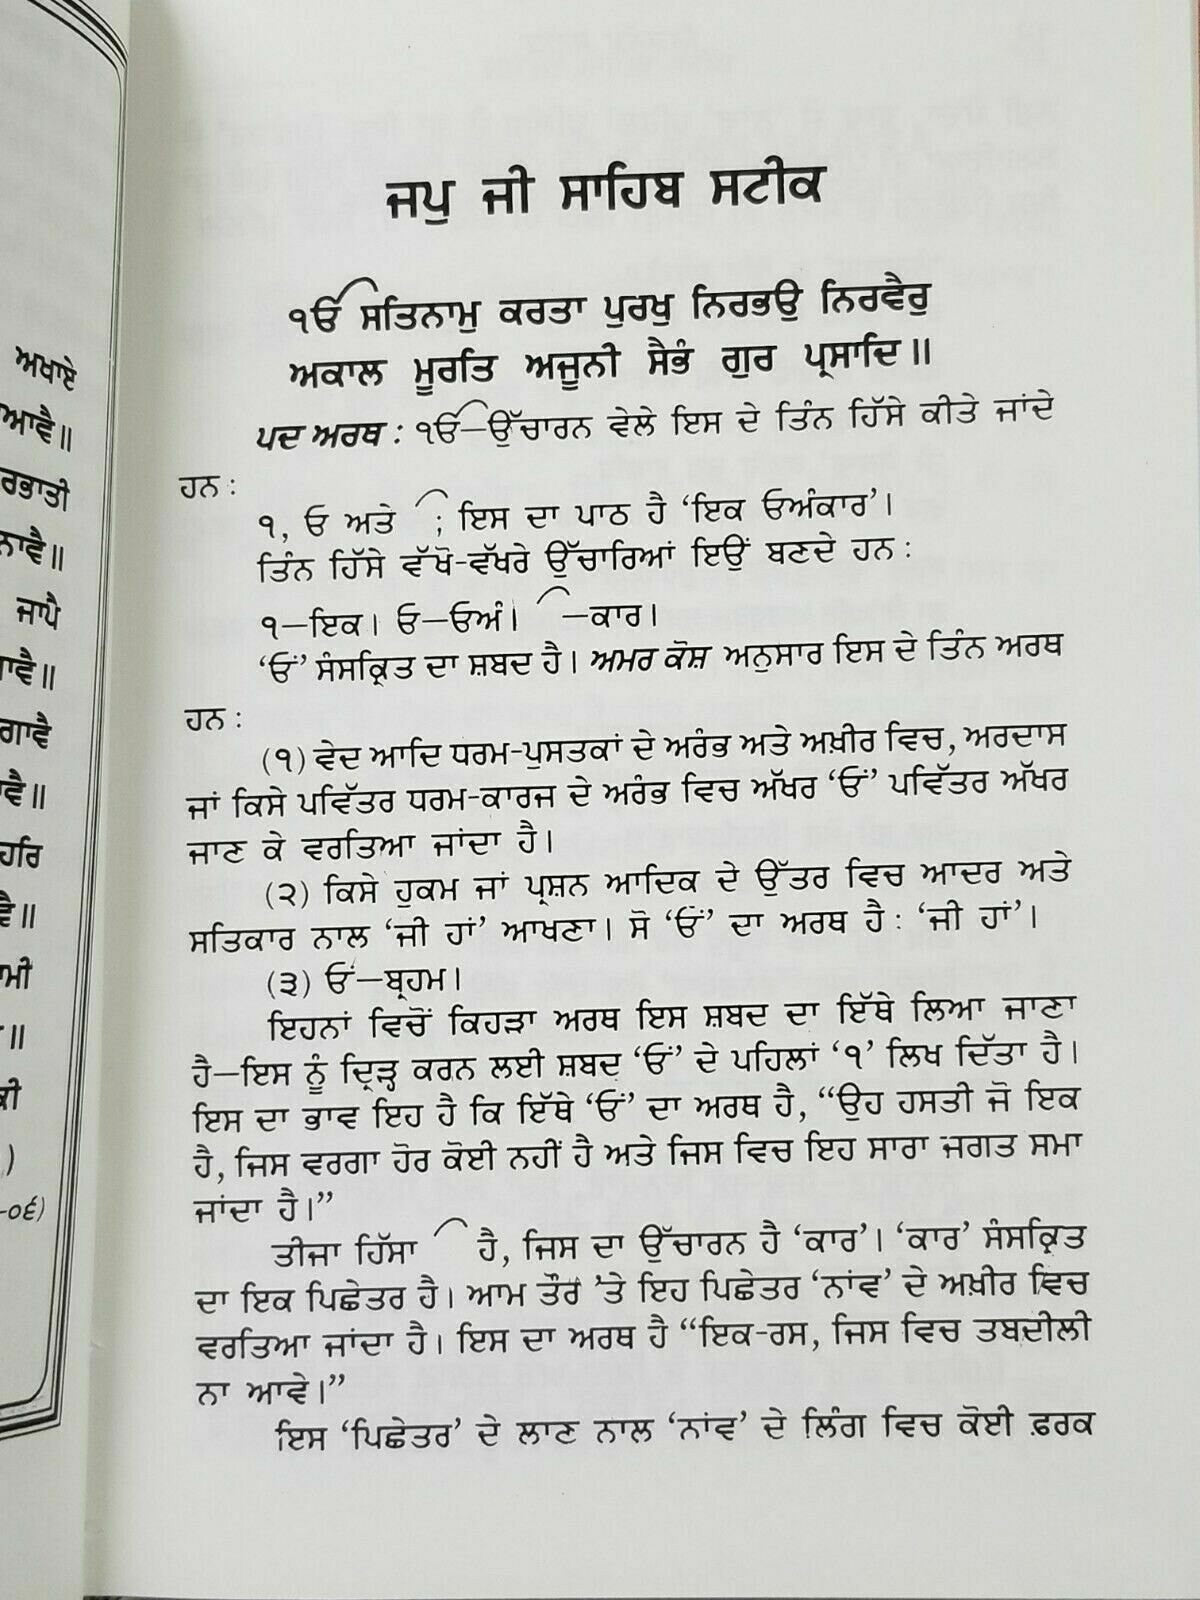 ਅਖਾਏ
ਜਾਪੈ
ਹਰਿ
-੦੬)
ਜਪੁ ਜੀ ਸਾਹਿਬ ਸਟੀਕ
ੴ ਸਤਿਨਾਮੁ ਕਰਤਾ ਪੁਰਖੁ ਨਿਰਭਉ ਨਿਰਵੈਰੁ
ਅਕਾਲ ਮੂਰਤਿ ਅਜੂਨੀ ਸੈਭੰ ਗੁਰ ਪ੍ਰਸਾਦਿ॥
ਪਦ ਅਰਥ : ੴ—ਉੱਚਾਰਨ ਵੇਲੇ ਇਸ ਦੇ ਤਿੰਨ ਹਿੱਸੇ ਕੀਤੇ ਜਾਂਦੇ
ਹਨ :
੧, ਓ ਅਤੇ ; ਇਸ ਦਾ ਪਾਠ ਹੈ ‘ਇਕ ਓਅੰਕਾਰ’।
ਤਿੰਨ ਹਿੱਸੇ ਵੱਖੋ-ਵੱਖਰੇ ਉੱਚਾਰਿਆਂ ਇਉਂ ਬਣਦੇ ਹਨ :
੧—ਇਕ। ਓ—ਓਅੰ। —ਕਾਰ।
‘ਓਂ’ ਸੰਸਕ੍ਰਿਤ ਦਾ ਸ਼ਬਦ ਹੈ। ਅਮਰ ਕੋਸ਼ ਅਨੁਸਾਰ ਇਸ ਦੇ ਤਿੰਨ ਅਰਥ
ਹਨ :
(੧) ਵੇਦ ਆਦਿ ਧਰਮ-ਪੁਸਤਕਾਂ ਦੇ ਅਰੰਭ ਅਤੇ ਅਖ਼ੀਰ ਵਿਚ, ਅਰਦਾਸ
ਜਾਂ ਕਿਸੇ ਪਵਿੱਤਰ ਧਰਮ-ਕਾਰਜ ਦੇ ਅਰੰਭ ਵਿਚ ਅੱਖਰ ‘ਓਂ’ ਪਵਿੱਤਰ ਅੱਖਰ
ਜਾਣ ਕੇ ਵਰਤਿਆ ਜਾਂਦਾ ਹੈ।
(੨) ਕਿਸੇ ਹੁਕਮ ਜਾਂ ਪ੍ਰਸ਼ਨ ਆਦਿਕ ਦੇ ਉੱਤਰ ਵਿਚ ਆਦਰ ਅਤੇ
ਸਤਿਕਾਰ ਨਾਲ ‘ਜੀ ਹਾਂ’ ਆਖਣਾ। ਸੋ ‘ਓਂ’ ਦਾ ਅਰਥ ਹੈ : ‘ਜੀ ਹਾਂ’।
(੩) ਓਂ—ਬ੍ਰਹਮ।
ਇਹਨਾਂ ਵਿਚੋਂ ਕਿਹੜਾ ਅਰਥ ਇਸ ਸ਼ਬਦ ਦਾ ਇੱਥੇ ਲਿਆ ਜਾਣਾ
ਹੈ—ਇਸ ਨੂੰ ਦ੍ਰਿੜ੍ਹ ਕਰਨ ਲਈ ਸ਼ਬਦ ‘ਓਂ’ ਦੇ ਪਹਿਲਾਂ ‘੧’ ਲਿਖ ਦਿੱਤਾ ਹੈ।
ਇਸ ਦਾ ਭਾਵ ਇਹ ਹੈ ਕਿ ਇੱਥੇ ‘ਓਂ’ ਦਾ ਅਰਥ ਹੈ, “ਉਹ ਹਸਤੀ ਜੋ ਇਕ
ਹੈ, ਜਿਸ ਵਰਗਾ ਹੋਰ ਕੋਈ ਨਹੀਂ ਹੈ ਅਤੇ ਜਿਸ ਵਿਚ ਇਹ ਸਾਰਾ ਜਗਤ ਸਮਾ
ਜਾਂਦਾ ਹੈ।”
ਤੀਜਾ ਹਿੱਸਾ ਹੈ, ਜਿਸ ਦਾ ਉੱਚਾਰਨ ਹੈ ‘ਕਾਰ’। ‘ਕਾਰ’ ਸੰਸਕ੍ਰਿਤ
ਦਾ ਇਕ ਪਿਛੇਤਰ ਹੈ। ਆਮ ਤੌਰ ’ਤੇ ਇਹ ਪਿਛੇਤਰ ‘ਨਾਂਵ’ ਦੇ ਅਖ਼ੀਰ ਵਿਚ
ਵਰਤਿਆ ਜਾਂਦਾ ਹੈ। ਇਸ ਦਾ ਅਰਥ ਹੈ “ਇਕ-ਰਸ, ਜਿਸ ਵਿਚ ਤਬਦੀਲੀ
ਨਾ ਆਵੇ।”
ਇਸ ‘ਪਿਛੇਤਰ’ ਦੇ ਲਾਣ ਨਾਲ ‘ਨਾਂਵ’ ਦੇ ਲਿੰਗ ਵਿਚ ਕੋਈ ਫ਼ਰਕ